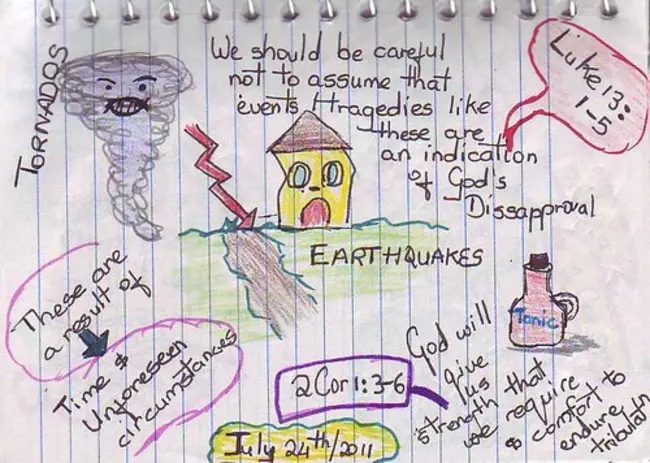 TORNADOS
We should be careful
not to assume that
events/tragedies like
these are
an indication
of God's
Dissapproval
Luke 13:
1-5
EARTHQUAKES
These are
a result of
Time &
Unforeseen
circumstances
Tonic
2 Cor 1:3-6
God will
give
us
strength that
we require
& comfort to
endure in
July 24th/2011